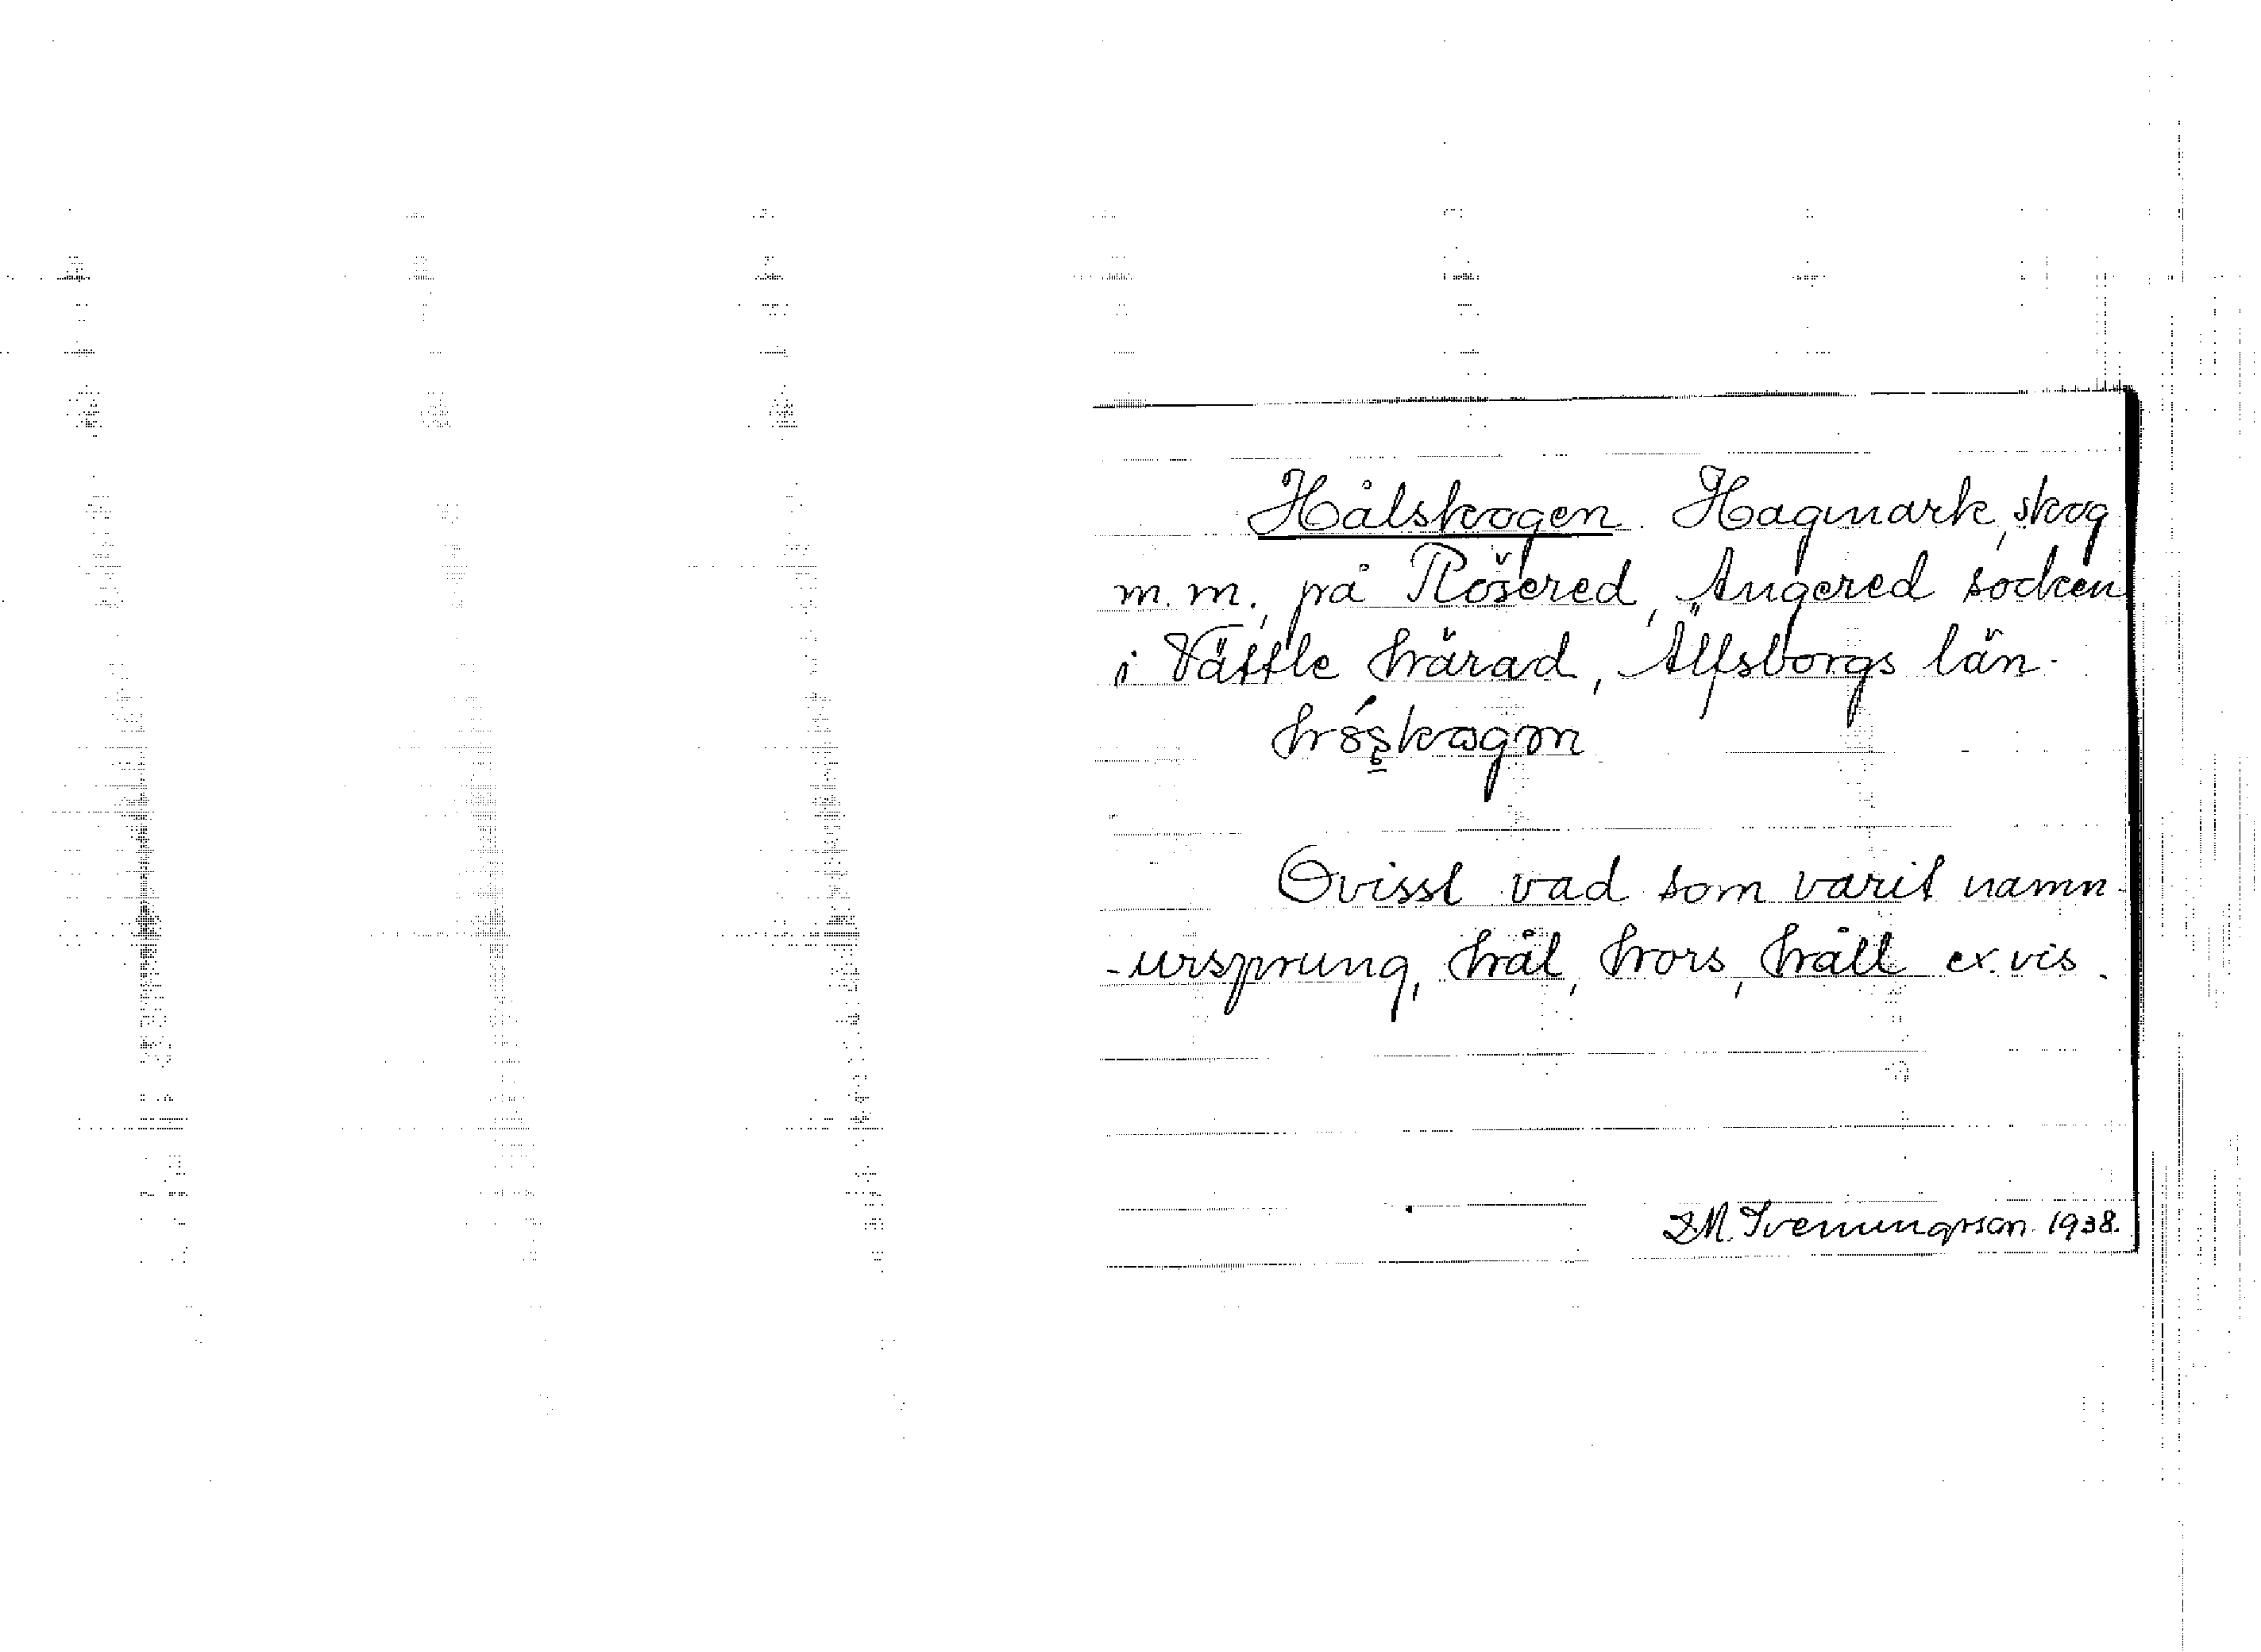 Hålskogen. Hagmark, skog
m.m., på Rösered, Angered socken
i Vättle härad, Älfsborgs län.
Ovisst vad som varit namn-
-ursprung, hål, hors, håll ex.vis.
D.M. Svenungsson. 1938.